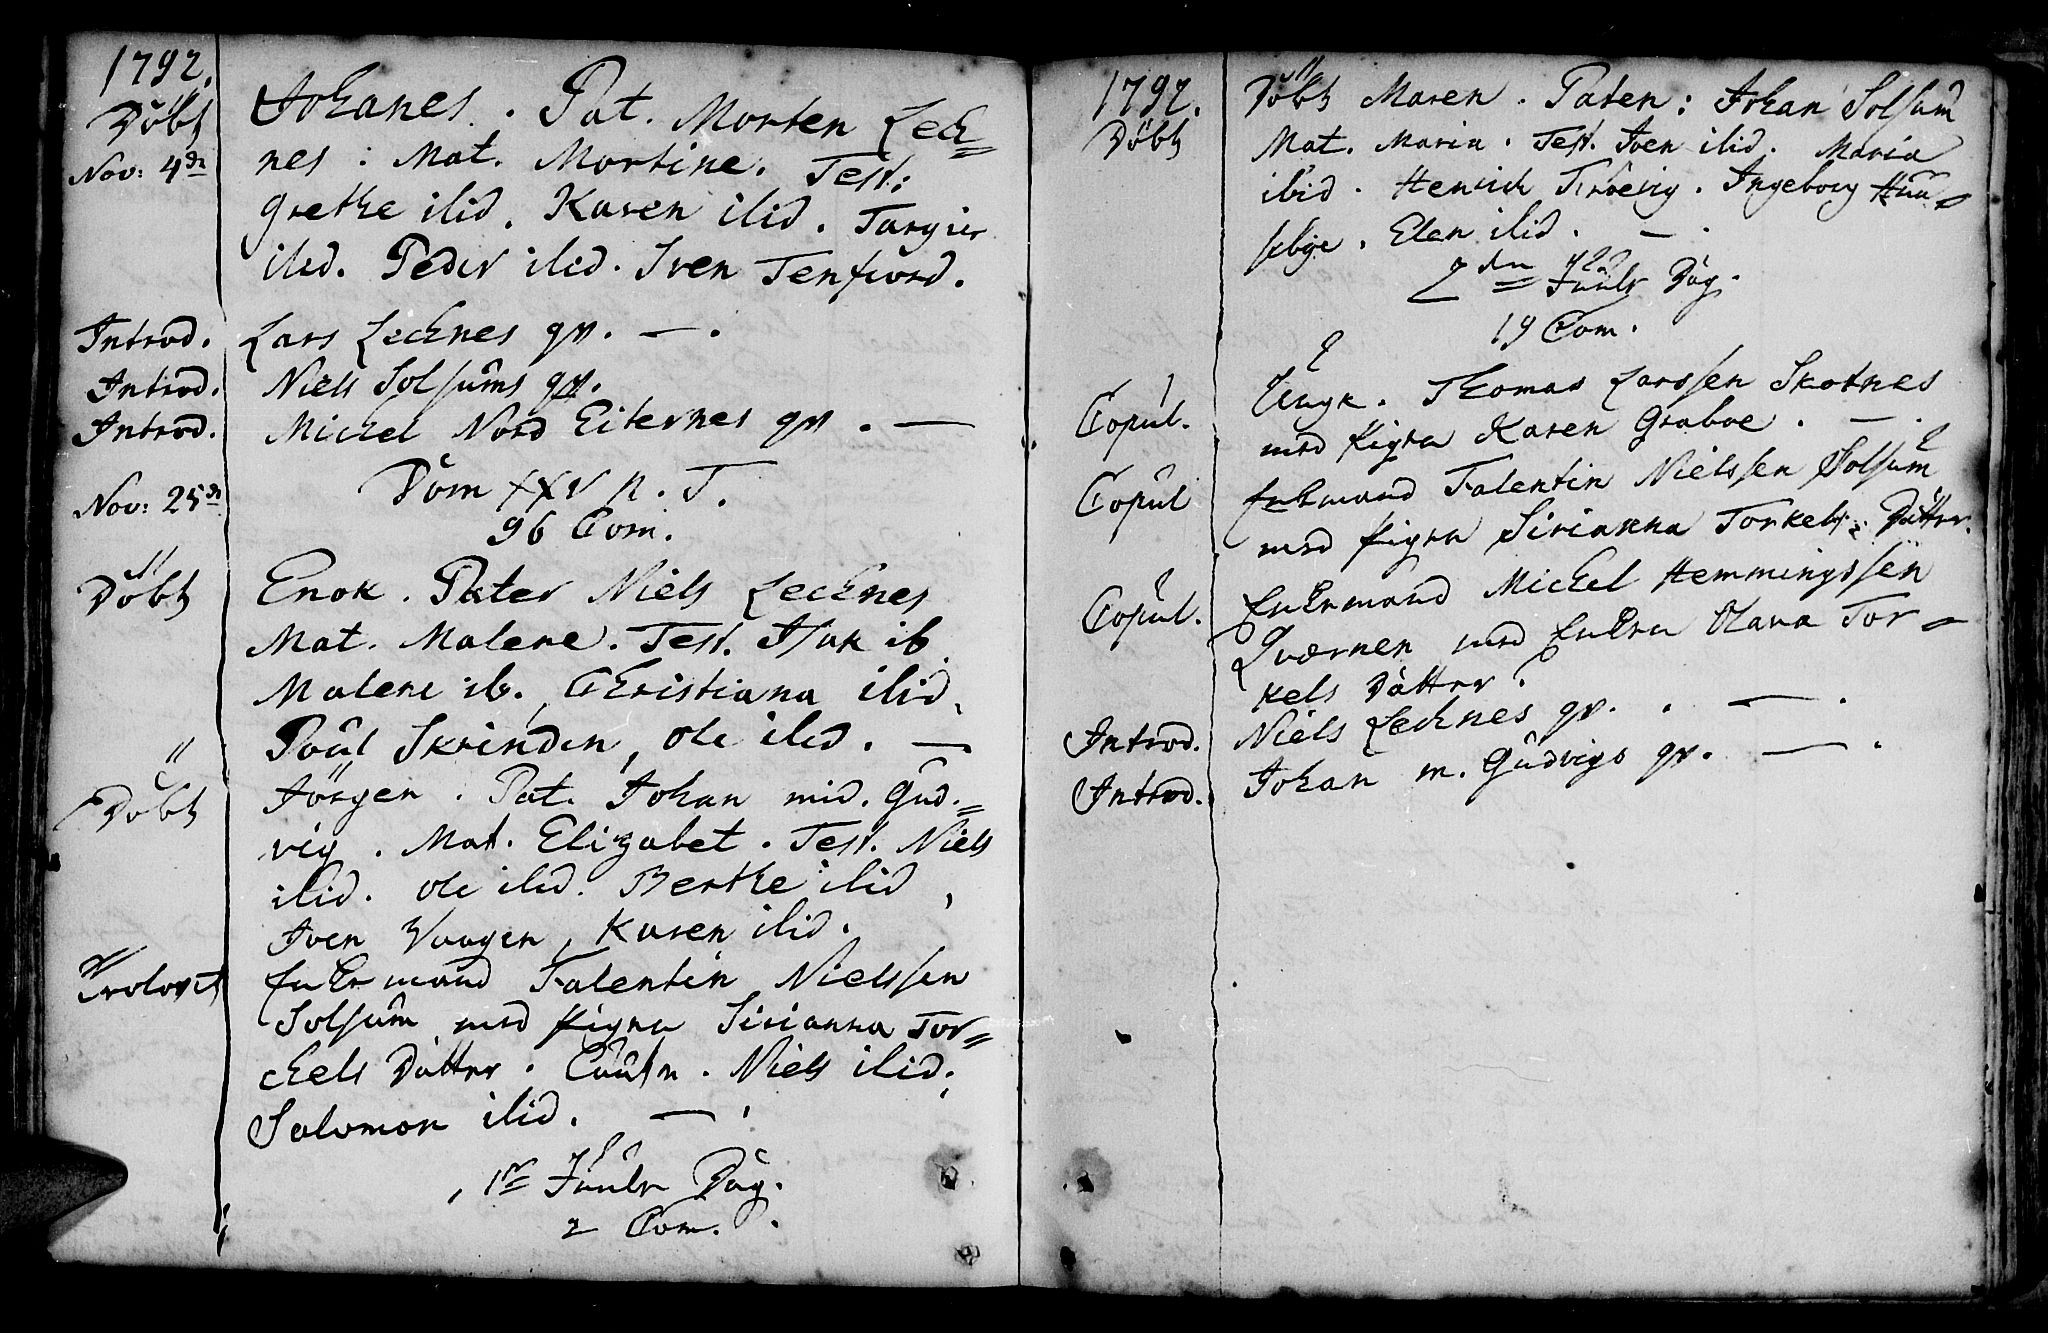 1792.
Döbt Johanes. Pat. Morten Lech=
Nov: 4de nes: Mat. Mortine. Test:
Grethe ibid. Karen ibid. Torgier
ibid. Peder ibid. Iven Tenfiord.
Introd. Lars Lechnes qv. — .
Introd. Niels Solsums qv.
Introd. Michel Nord Eiternes qv. —
Dom XXV p. T.
Nov: 25de
96 Com.
Döbt Enok. Pater Niels Lechnes
Mat. Malene. Test. Isak ib.
Malene ib., Christiana ibid,
Povel Skrinden, Ole ibid. —
Döbt Jörgen. Pat. Johan mid. Gud=
vig. Mat. Elizabet. Test. Niels
ibid. Ole ibid. Berthe ibid,
Iven Vaagen, Karen ibid.
Trolovet Enkemand Falentin Nielssen
Solsum med Pigen Sirianna Tor=
chels Datter. Cauten. Niels ibid.
Solomon ibid. — .
1ste Juule Dag.
2 Com.
1792.
Döbt Döbt Maren. Pater: Johan Solsum
Mat. Maria. Test. Iven ibid. Maria
ibid. Henrich Ingeborg Huu=
sebye. Elen ibid. — .
2den Juule Dag.
19 Com.
Copul. Ungk. Thomas Larssen Skotnes
med Pigen Karen Graboe. — .
Copul Enkemand Falentin Nielssen Solsum
med Pigen Sirianna Torkels: Datter.
Copul. Enkemand Michel Hemmingssen
Qværnen med Enken Olava Tor=
kels Datter.
Introd. Niels Lechnes qv. . — .
Introd. Johan m. Gudvigs qv. — .